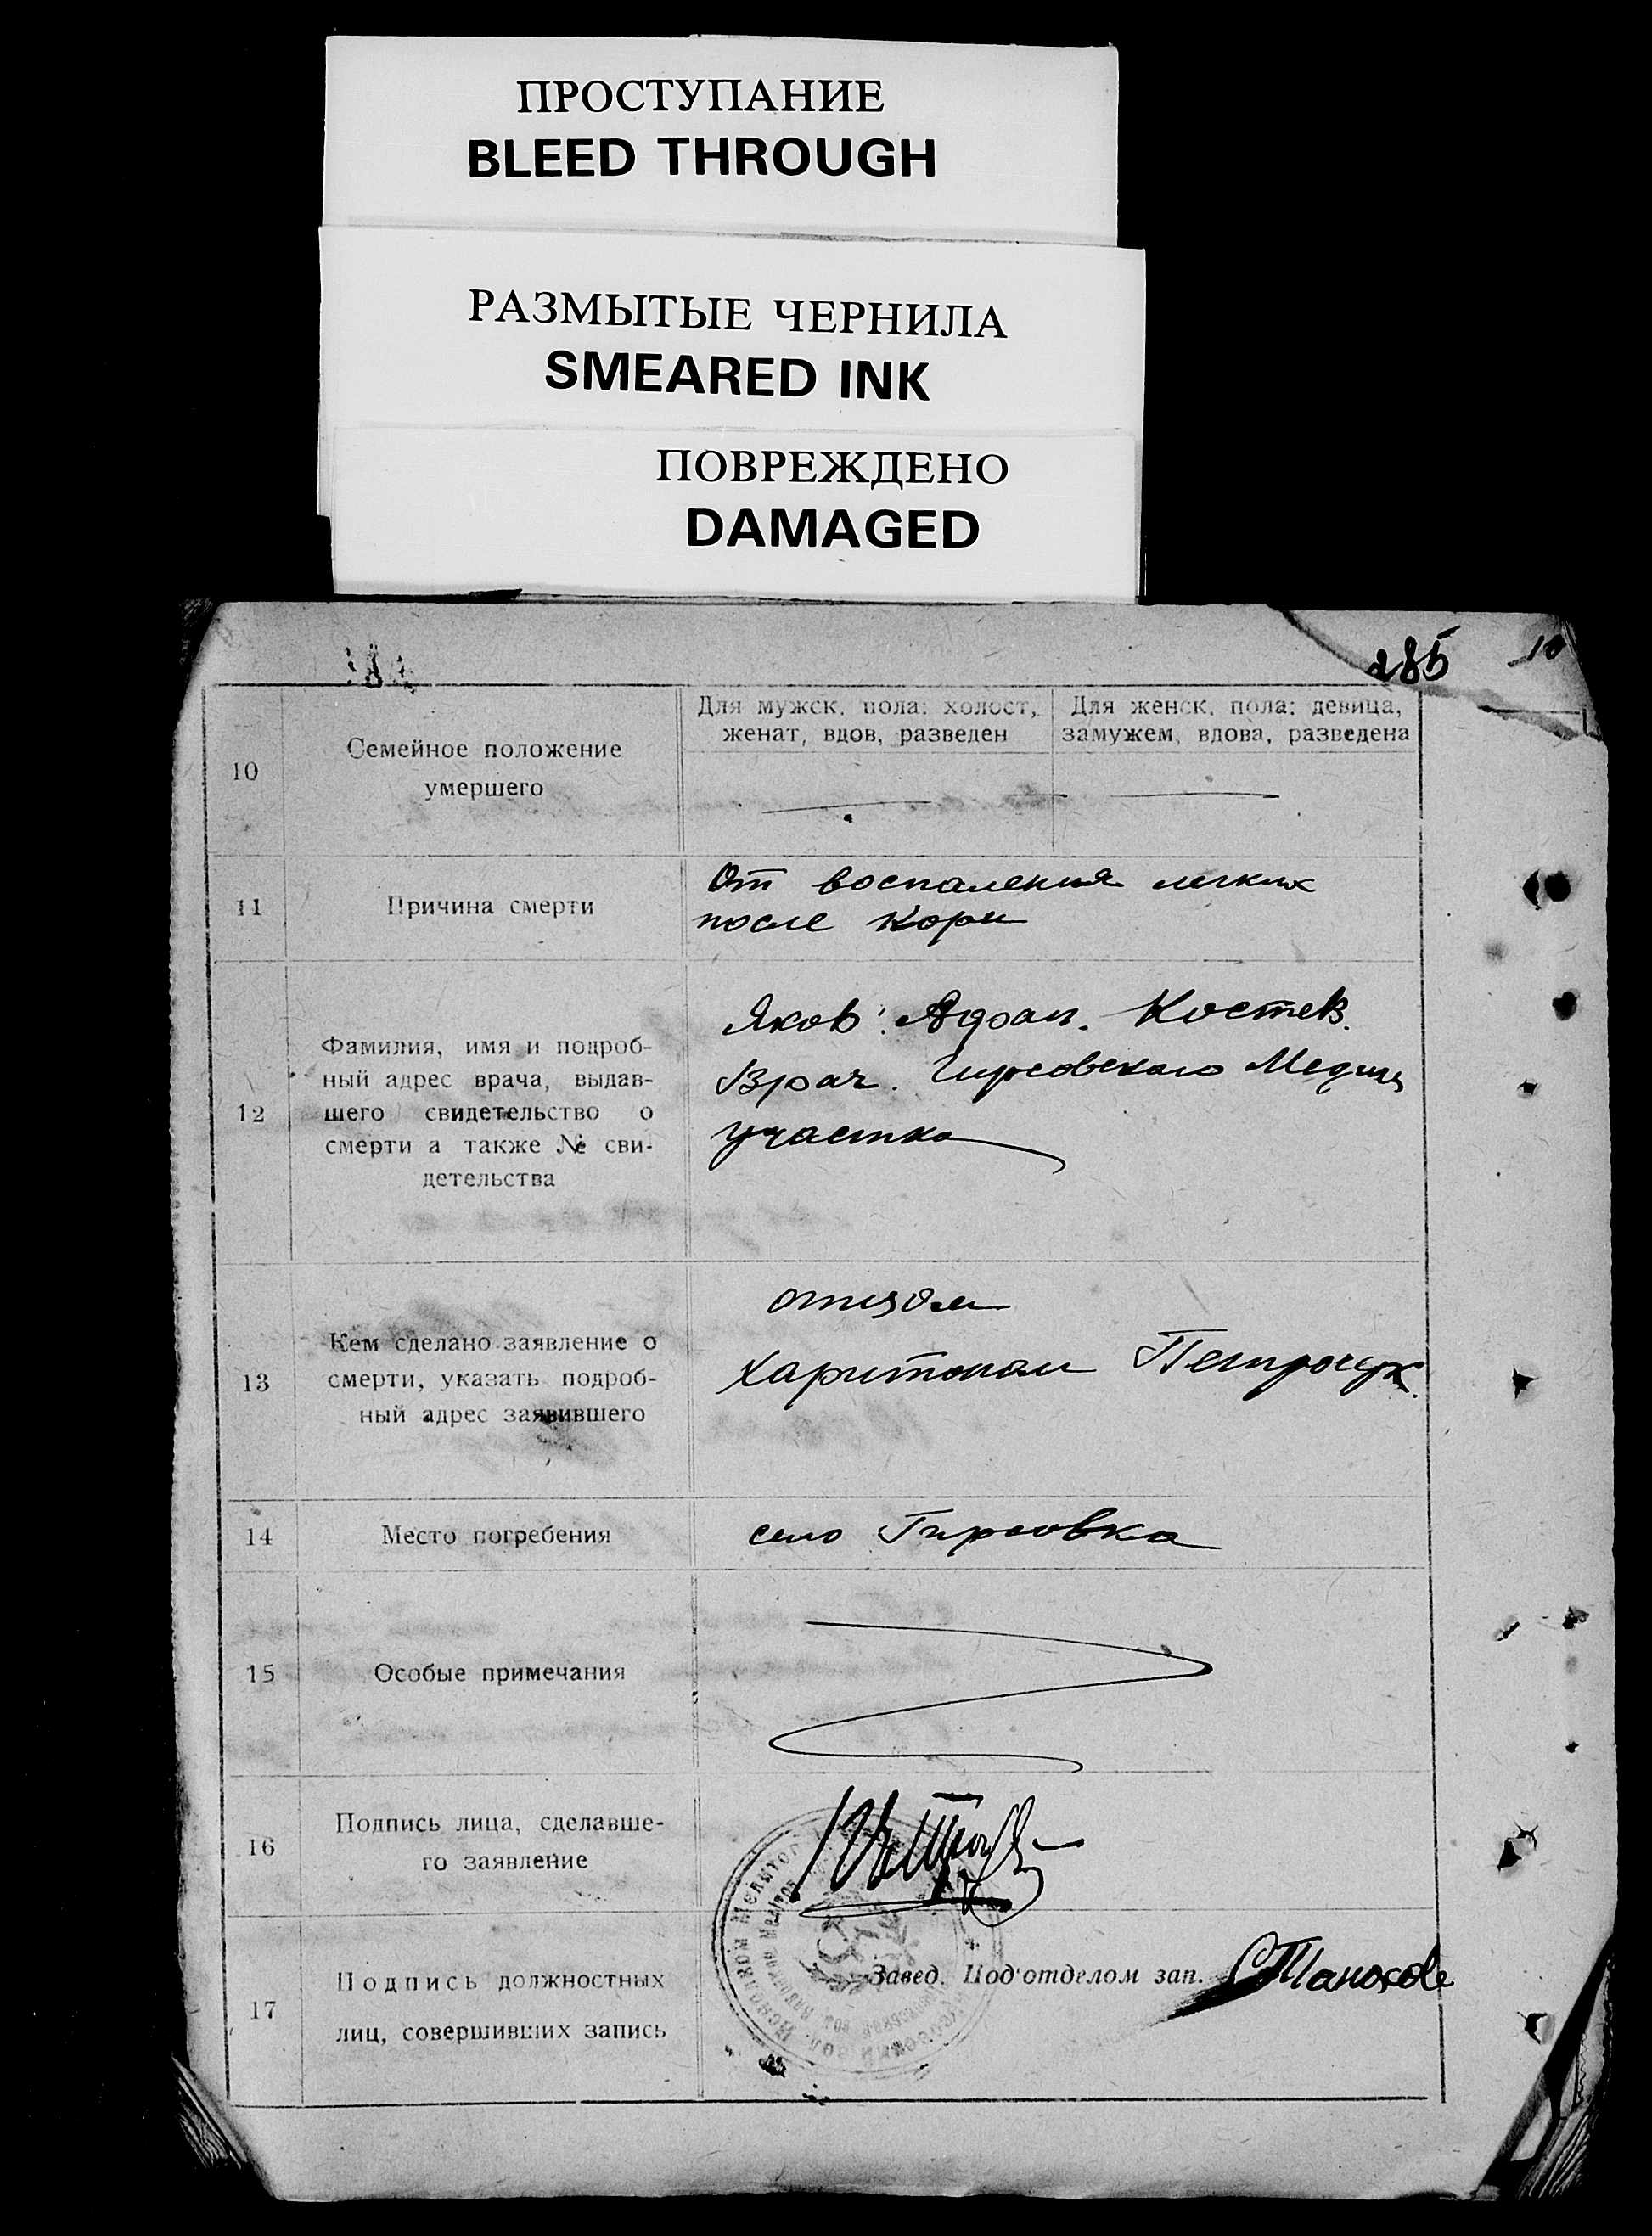 ПРОСТУПАНИЕ
BLEED THROUGH
РАЗМЫТЫЕ ЧЕРНИЛА
SMEARED INK
ПОВРЕЖДЕНО
DAMAGED
285
10
10
Семейное положение
умершего
Для мужск. пола: холост,
женат, вдов, разведен
Для женск. пола: девица,
замужем, вдова, разведена
11
Причина смерти
От воспаления легких
после кори
12
Фамилия, имя и подроб-
ный адрес врача, выдав-
шего свидетельство о
смерти а также № сви-
детельства
Яков Костев.
Врач. Гирсовскаго Медиц
участка
13
Кем сделано заявление о
смерти, указать подроб-
ный адрес заявившего
отцом
Харитоном Петрочук.
14
Место погребения
село Гирсовка
15
Особые примечания
16
Подпись лица, сделавше-
го заявление
17
Подпись должностных
лиц, совершивших запись
Завед. Под'отделом зап.